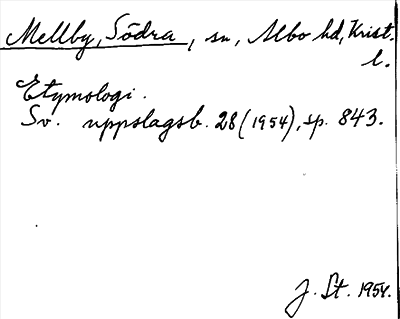 Mellby, Södra, sn, Albo hd, Krist.
l.
Etymologi.
Sv. uppslagsb. 28 (1954), sp. 843.
J. St. 1954.